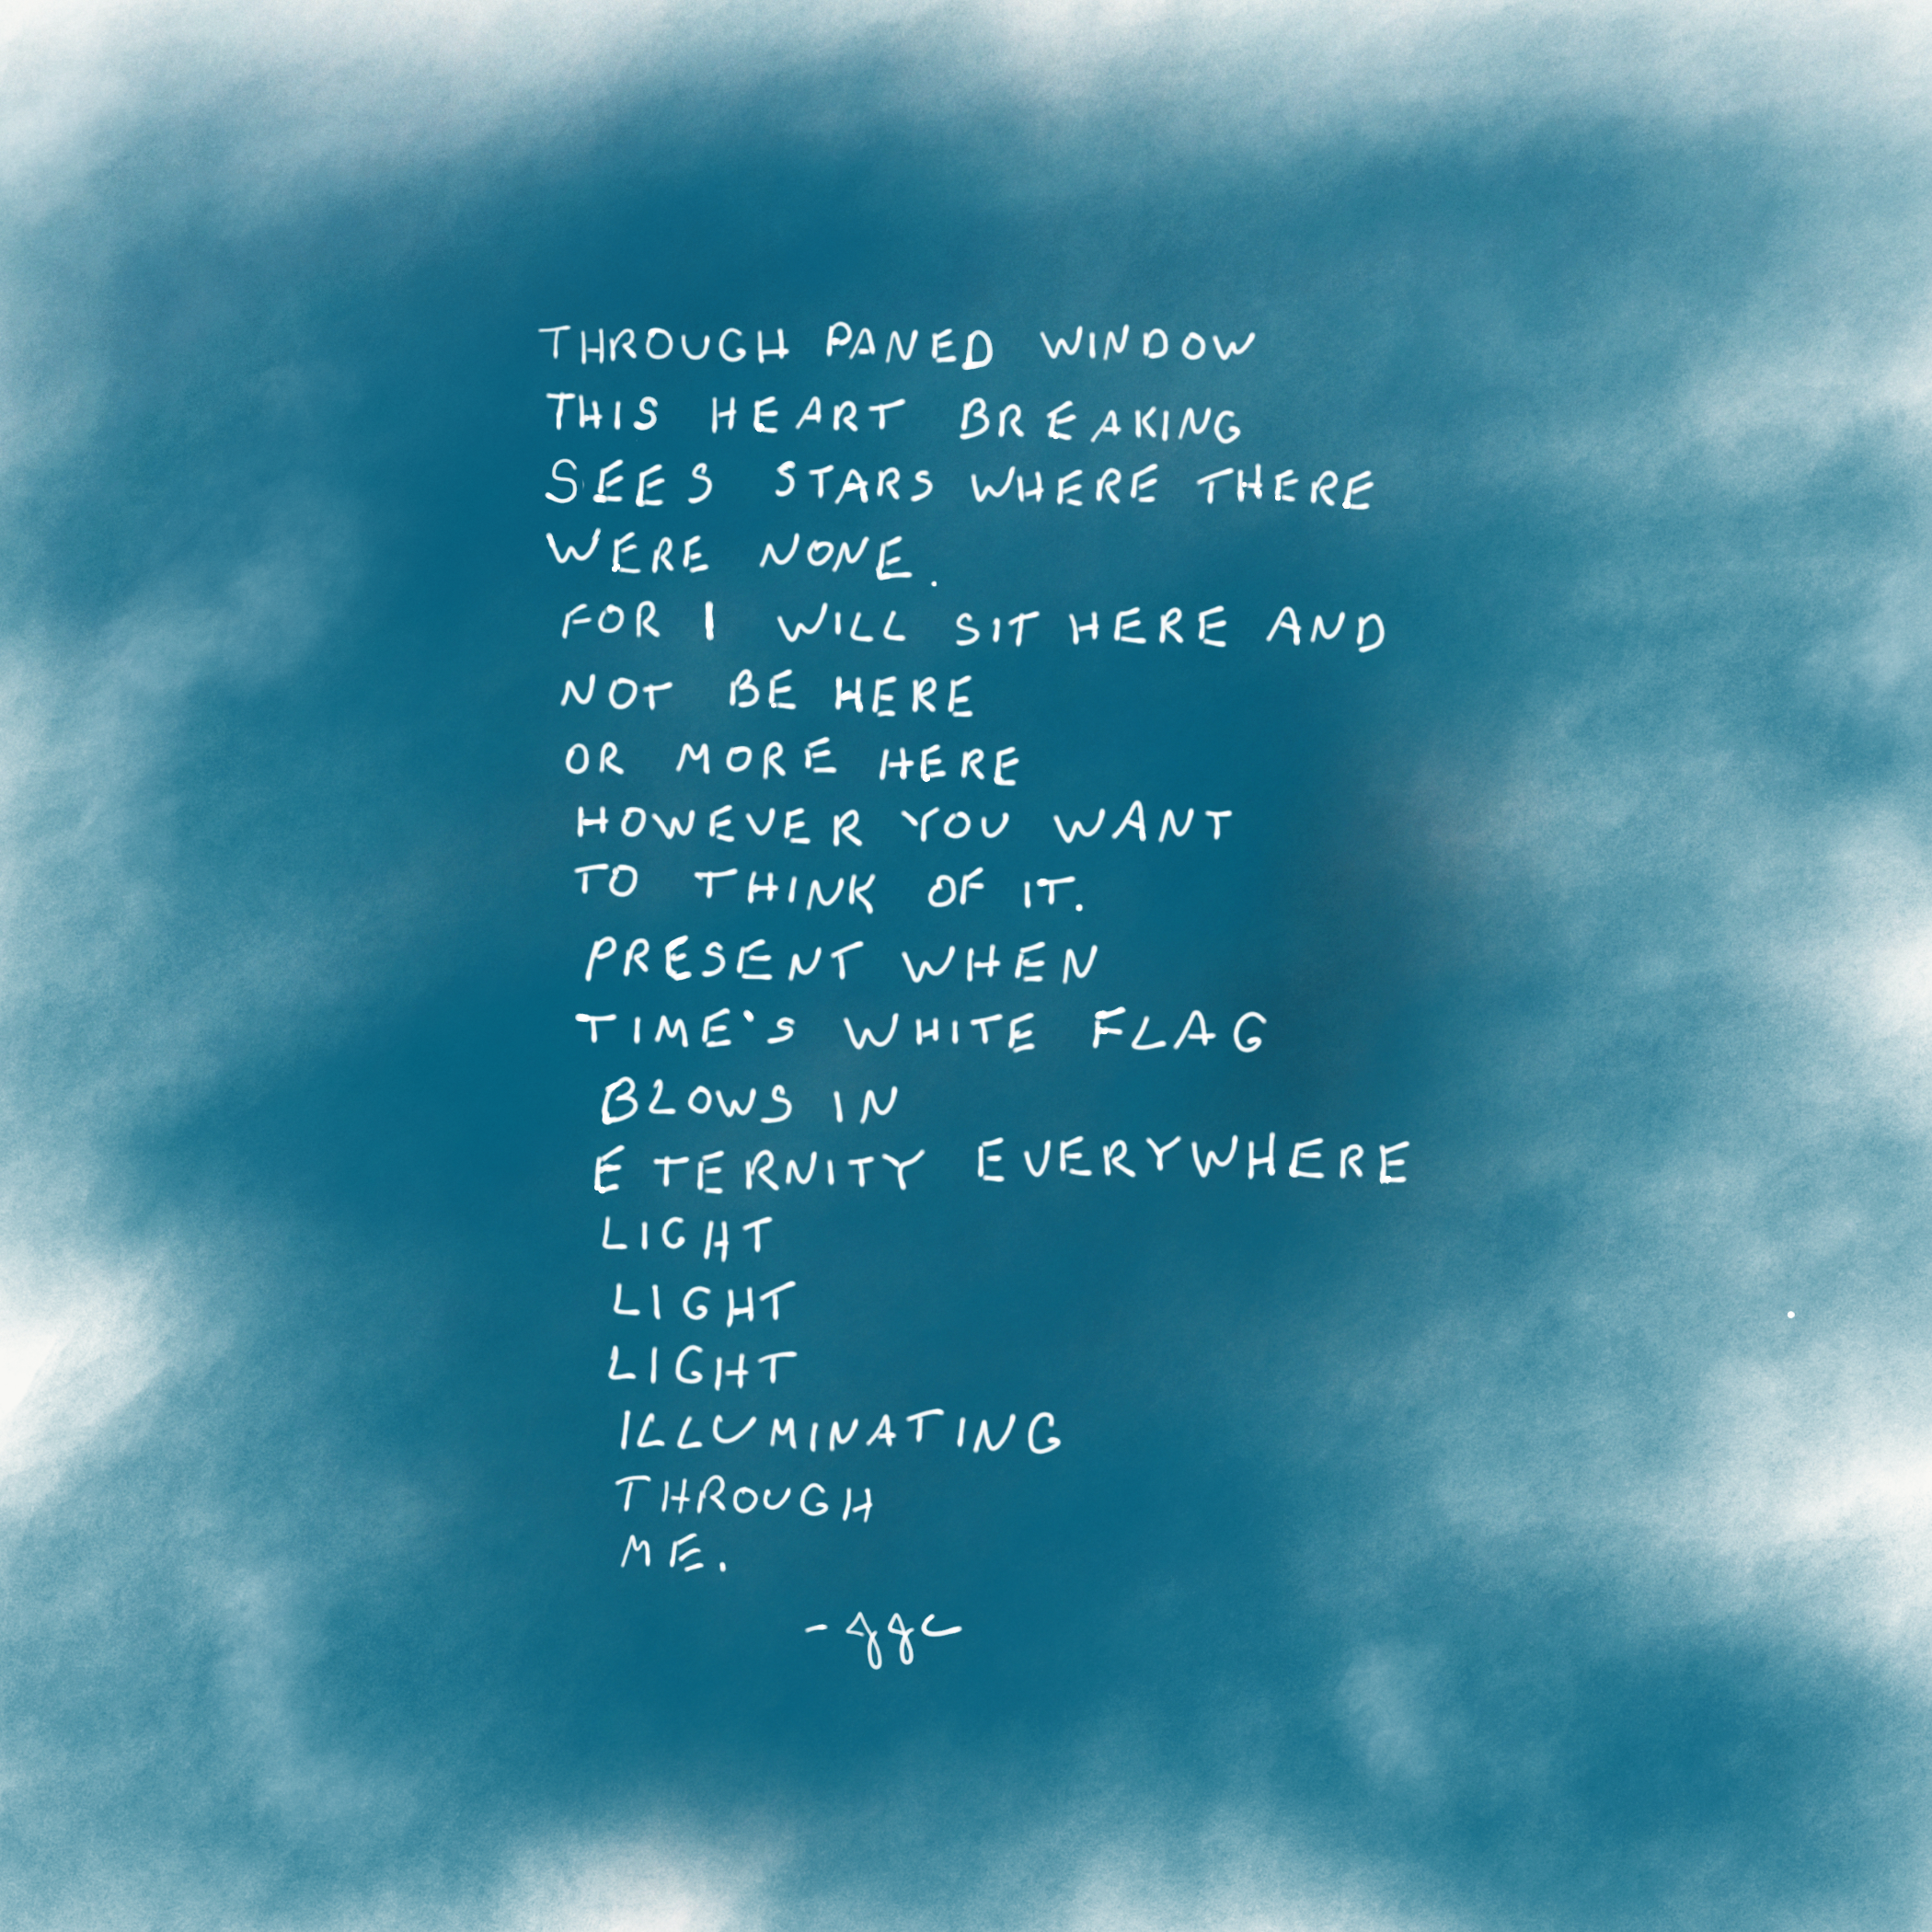 THROUGH PANED WINDOW
THIS HEART BREAKING
SEES STARS WHERE THERE
WERE NONE.
FOR I WILL SIT HERE AND
NOT BE HERE
OR MORE HERE
HOWEVER YOU WANT
TO THINK OF IT.
PRESENT WHEN
TIME'S WHITE FLAG
BLOWS IN
ETERNITY EVERYWHERE
LIGHT
LIGHT
LIGHT
ILLUMINATING
THROUGH
ME.